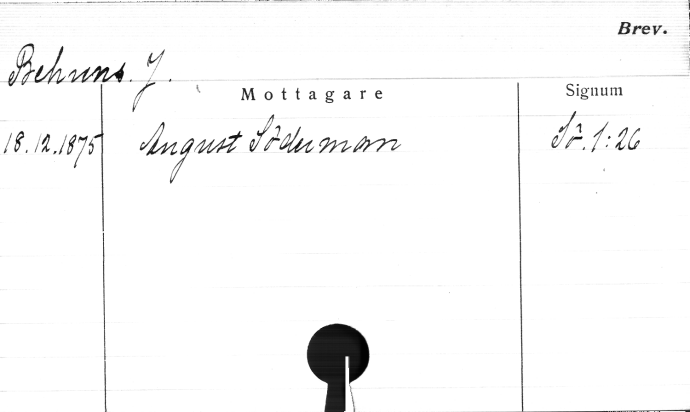 Brev.
Behrens. J.
Mottagare Signum
18.12.1875 August Söderman Sö. 1:26